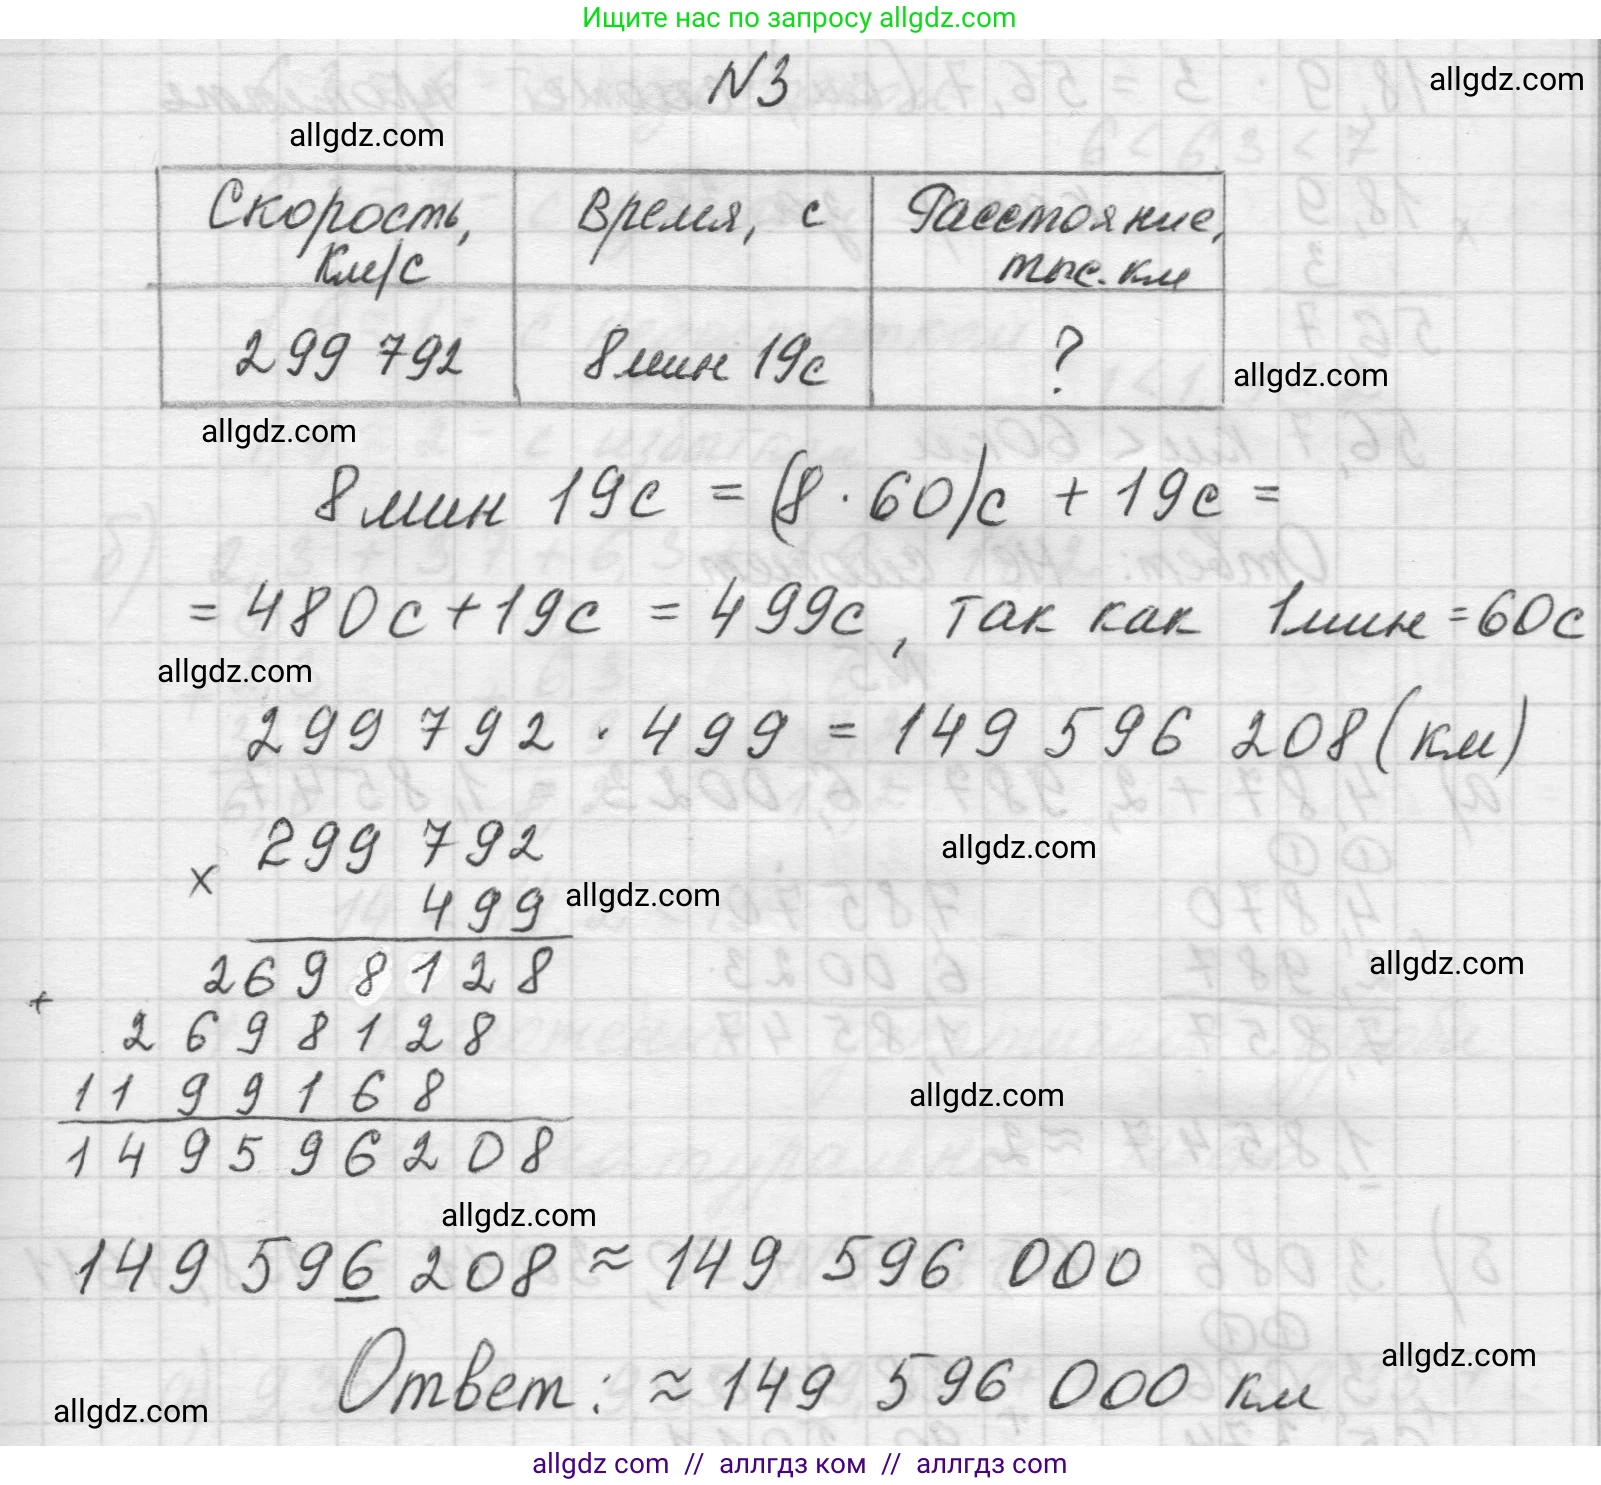 Ищите нас по запросу allgdz.com
N3
allgdz.com
allgdz.com
Скорость, км/с
Время, с
Расстояние, тыс. км
299 792
8мин 19с
?
allgdz.com
allgdz.com
8мин 19с = (8 · 60)с + 19с =
= 480с + 19с = 499с, так как 1мин = 60с
allgdz.com
299 792 · 499 = 149 596 208 (км)
× 299 792
allgdz.com
499
allgdz.com
2698128
allgdz.com
+ 2698128
1199168
allgdz.com
149596208
allgdz.com
149 596 208 ≈ 149 596 000
Ответ: ≈ 149 596 000 км
allgdz.com
allgdz.com
allgdz com // аллгдз ком // аллгдз com